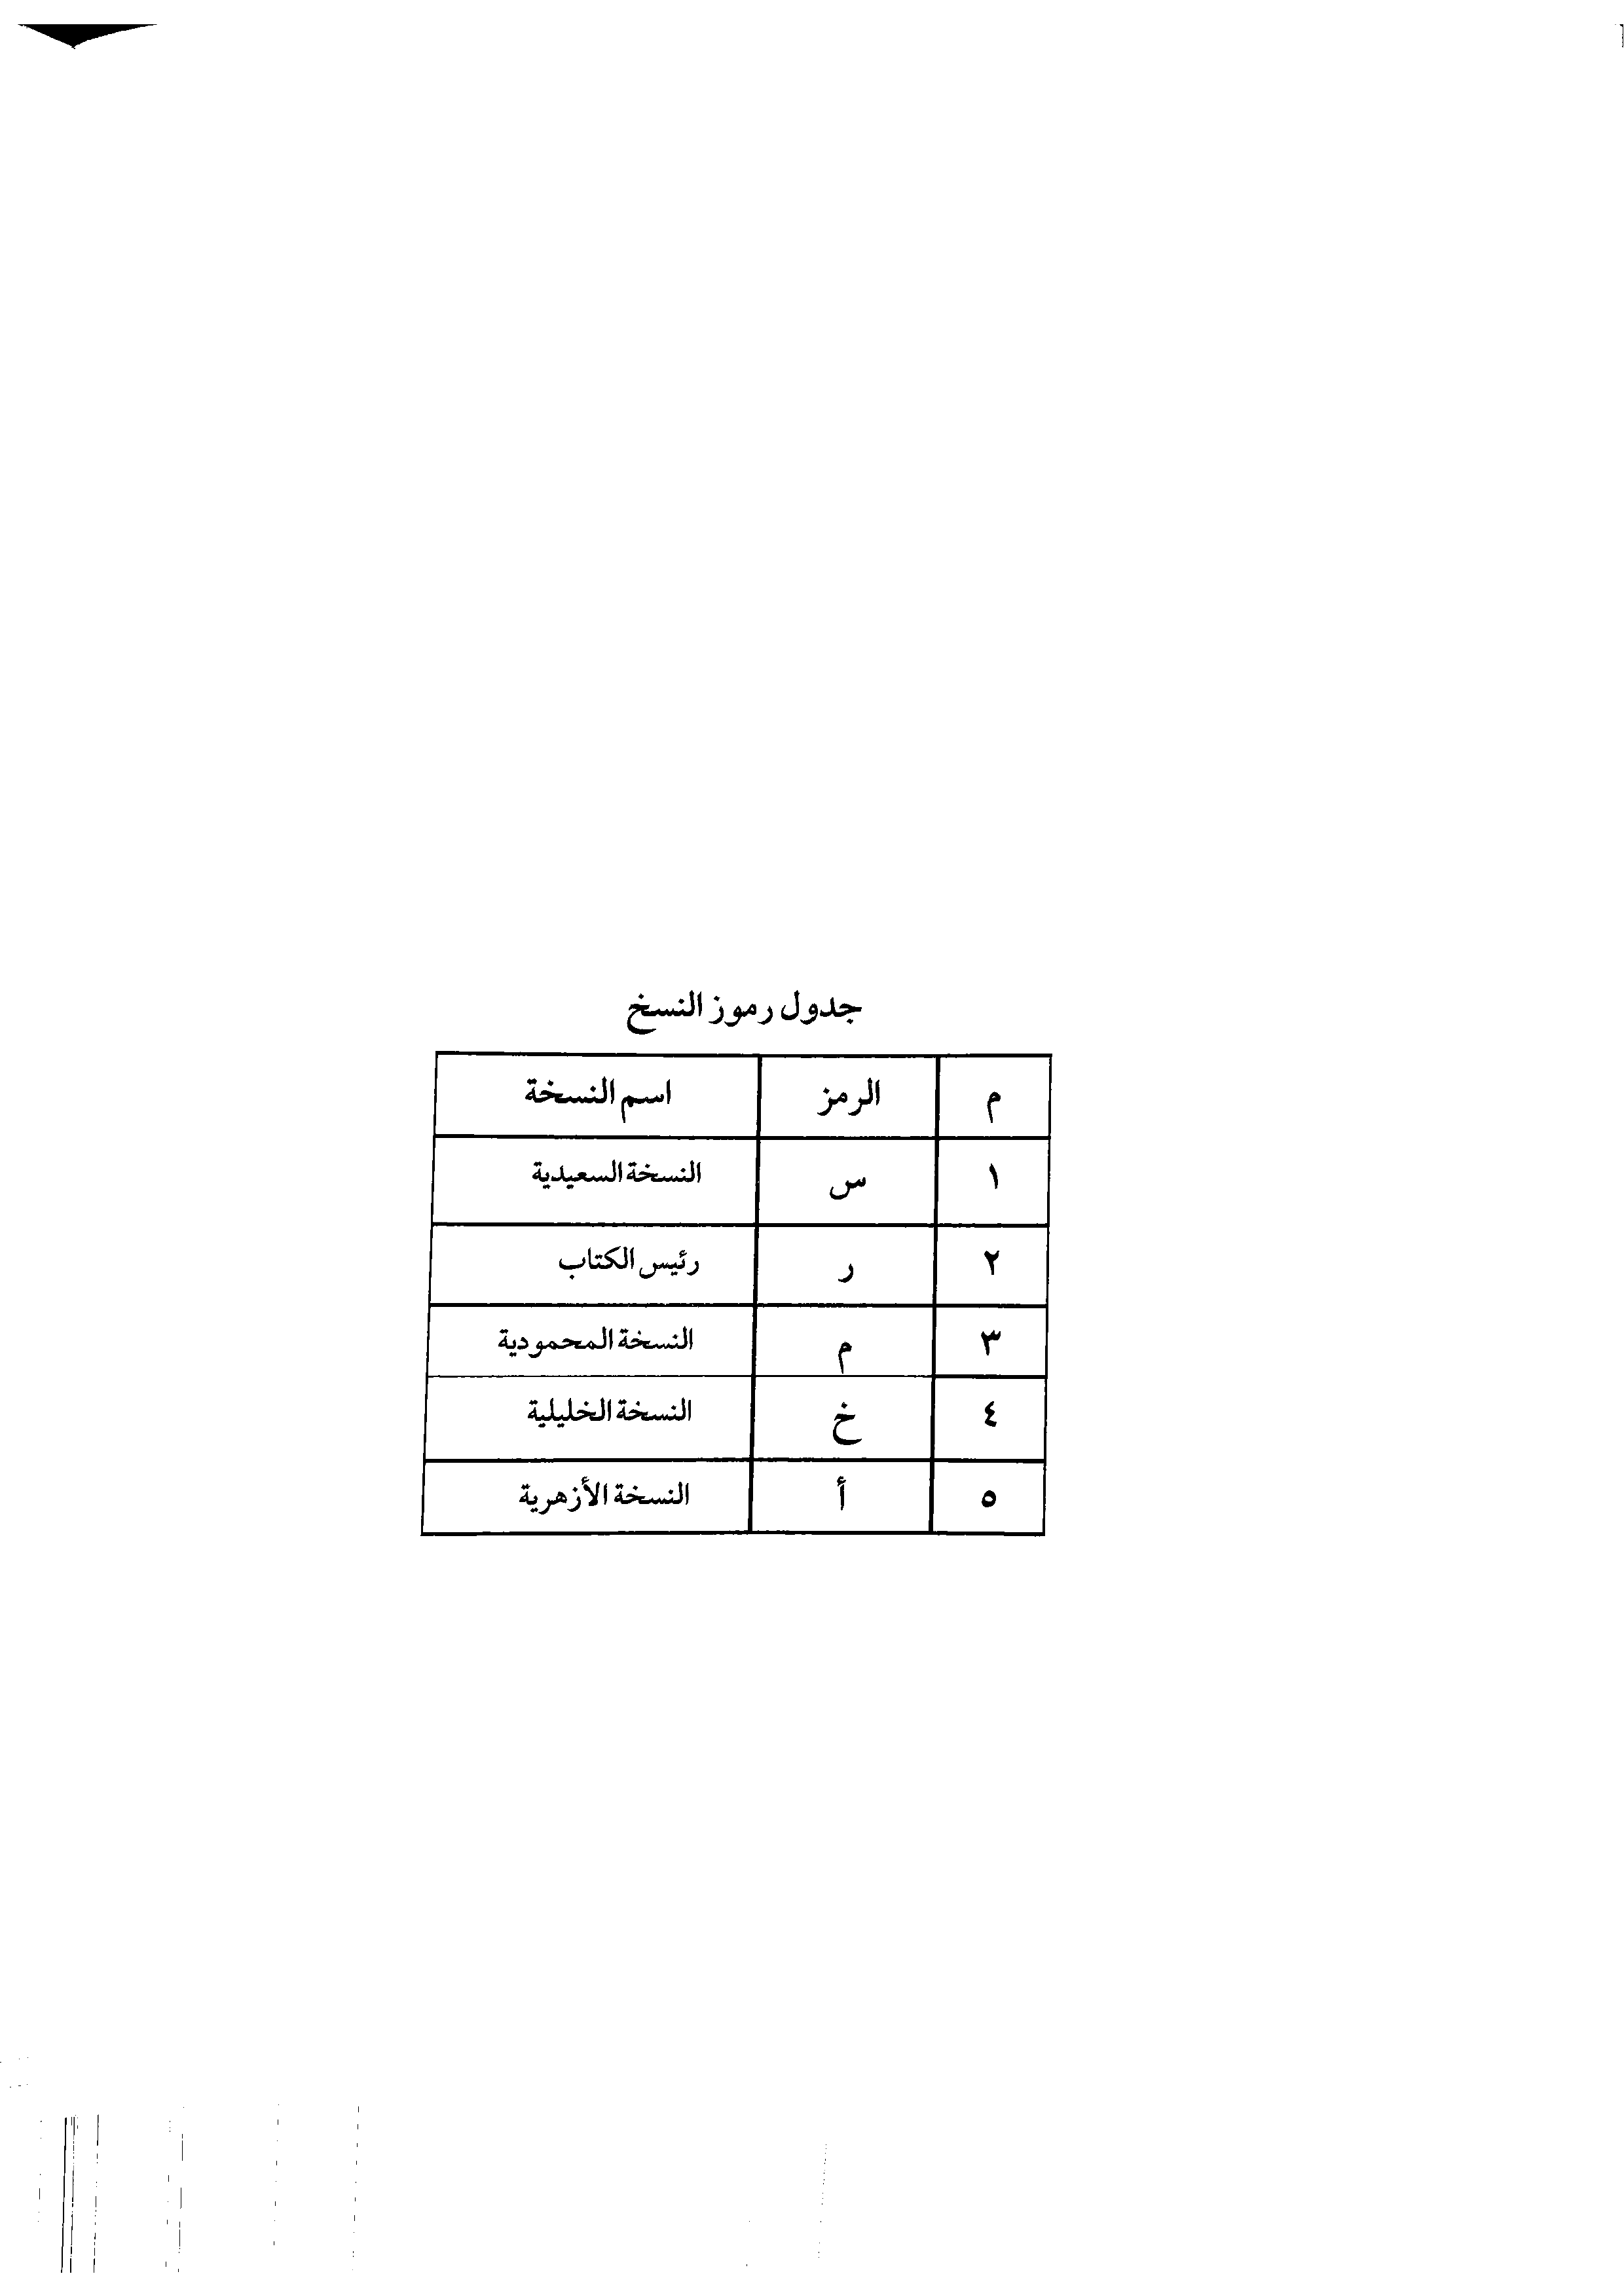 جدول رموز النسخ
م الرمز اسم النسخة
١ س النسخة السعيدية
٢ ر رئيس الكتاب
٣ م النسخة المحمودية
٤ خ النسخة الخليلية
٥ أ النسخة الأزهرية